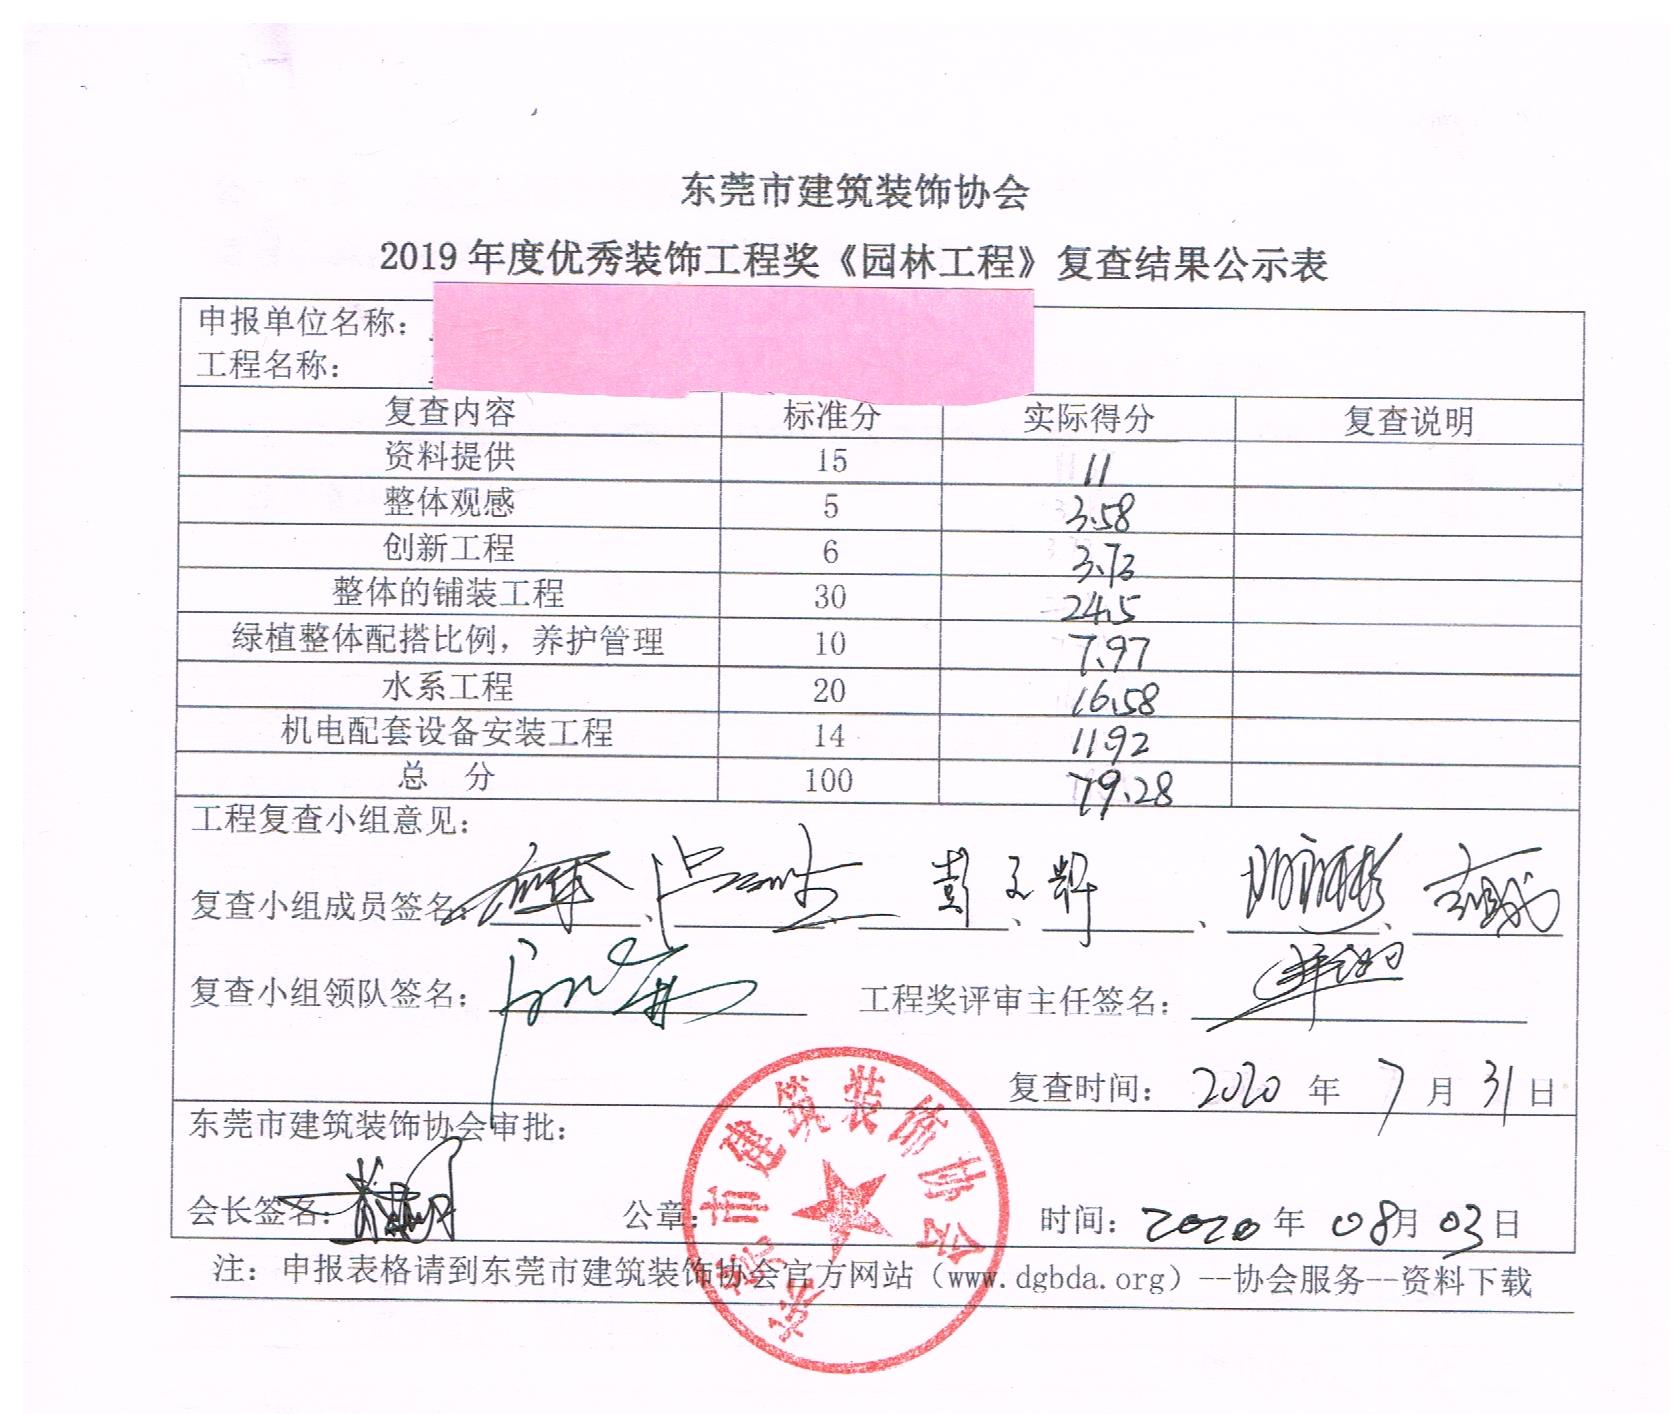 东莞市建筑装饰协会
2019 年度优秀装饰工程奖《园林工程》复查结果公示表
申报单位名称：
工程名称：
复查内容 标准分 实际得分 复查说明
资料提供 15 11
整体观感 5 3.58
创新工程 6 3.73
整体的铺装工程 30 24.5
绿植整体配搭比例，养护管理 10 7.97
水系工程 20 16.58
机电配套设备安装工程 14 11.92
总 分 100 79.28
工程复查小组意见：
复查小组成员签名： 、 、 彭 、 、 、
复查小组领队签名： 工程奖评审主任签名：
复查时间： 2020 年 7 月 31 日
东莞市建筑装饰协会审批：
会长签名： 公章： 时间： 2020 年 08 月 03 日
东莞市建筑装饰协会
注：申报表格请到东莞市建筑装饰协会官方网站（www.dgbda.org）--协会服务--资料下载